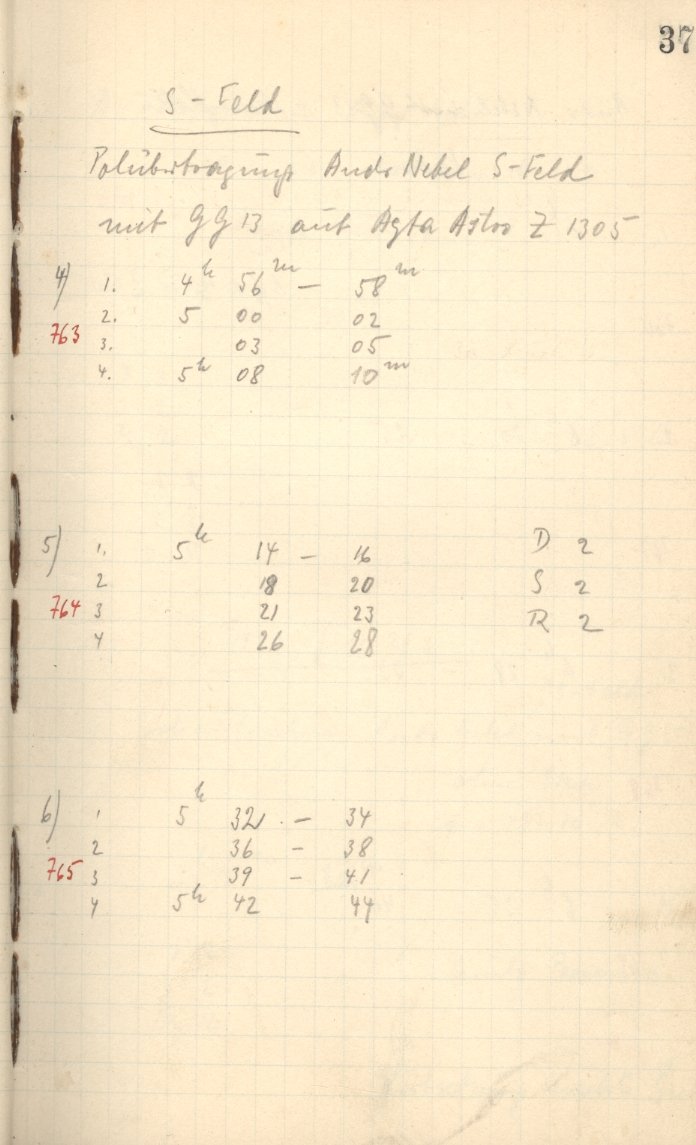 37
S-Feld
Polübertragung Andr Nebel S-Feld
mit GG 13 auf Agfa Astro Z 1305
4) 1. 4h 56m — 58m
2. 5 00 02
763
3. 03 05
4. 5h 08 10m
5) 1. 5h 14 — 16 D 2
2 18 20 S 2
764 3 21 23 R 2
4 26 28
6) 1 5h 32 — 34
2 36 — 38
765 3 39 — 41
4 5h 42 44